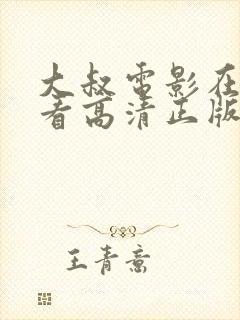 大叔電影在
看高清正版
王青意